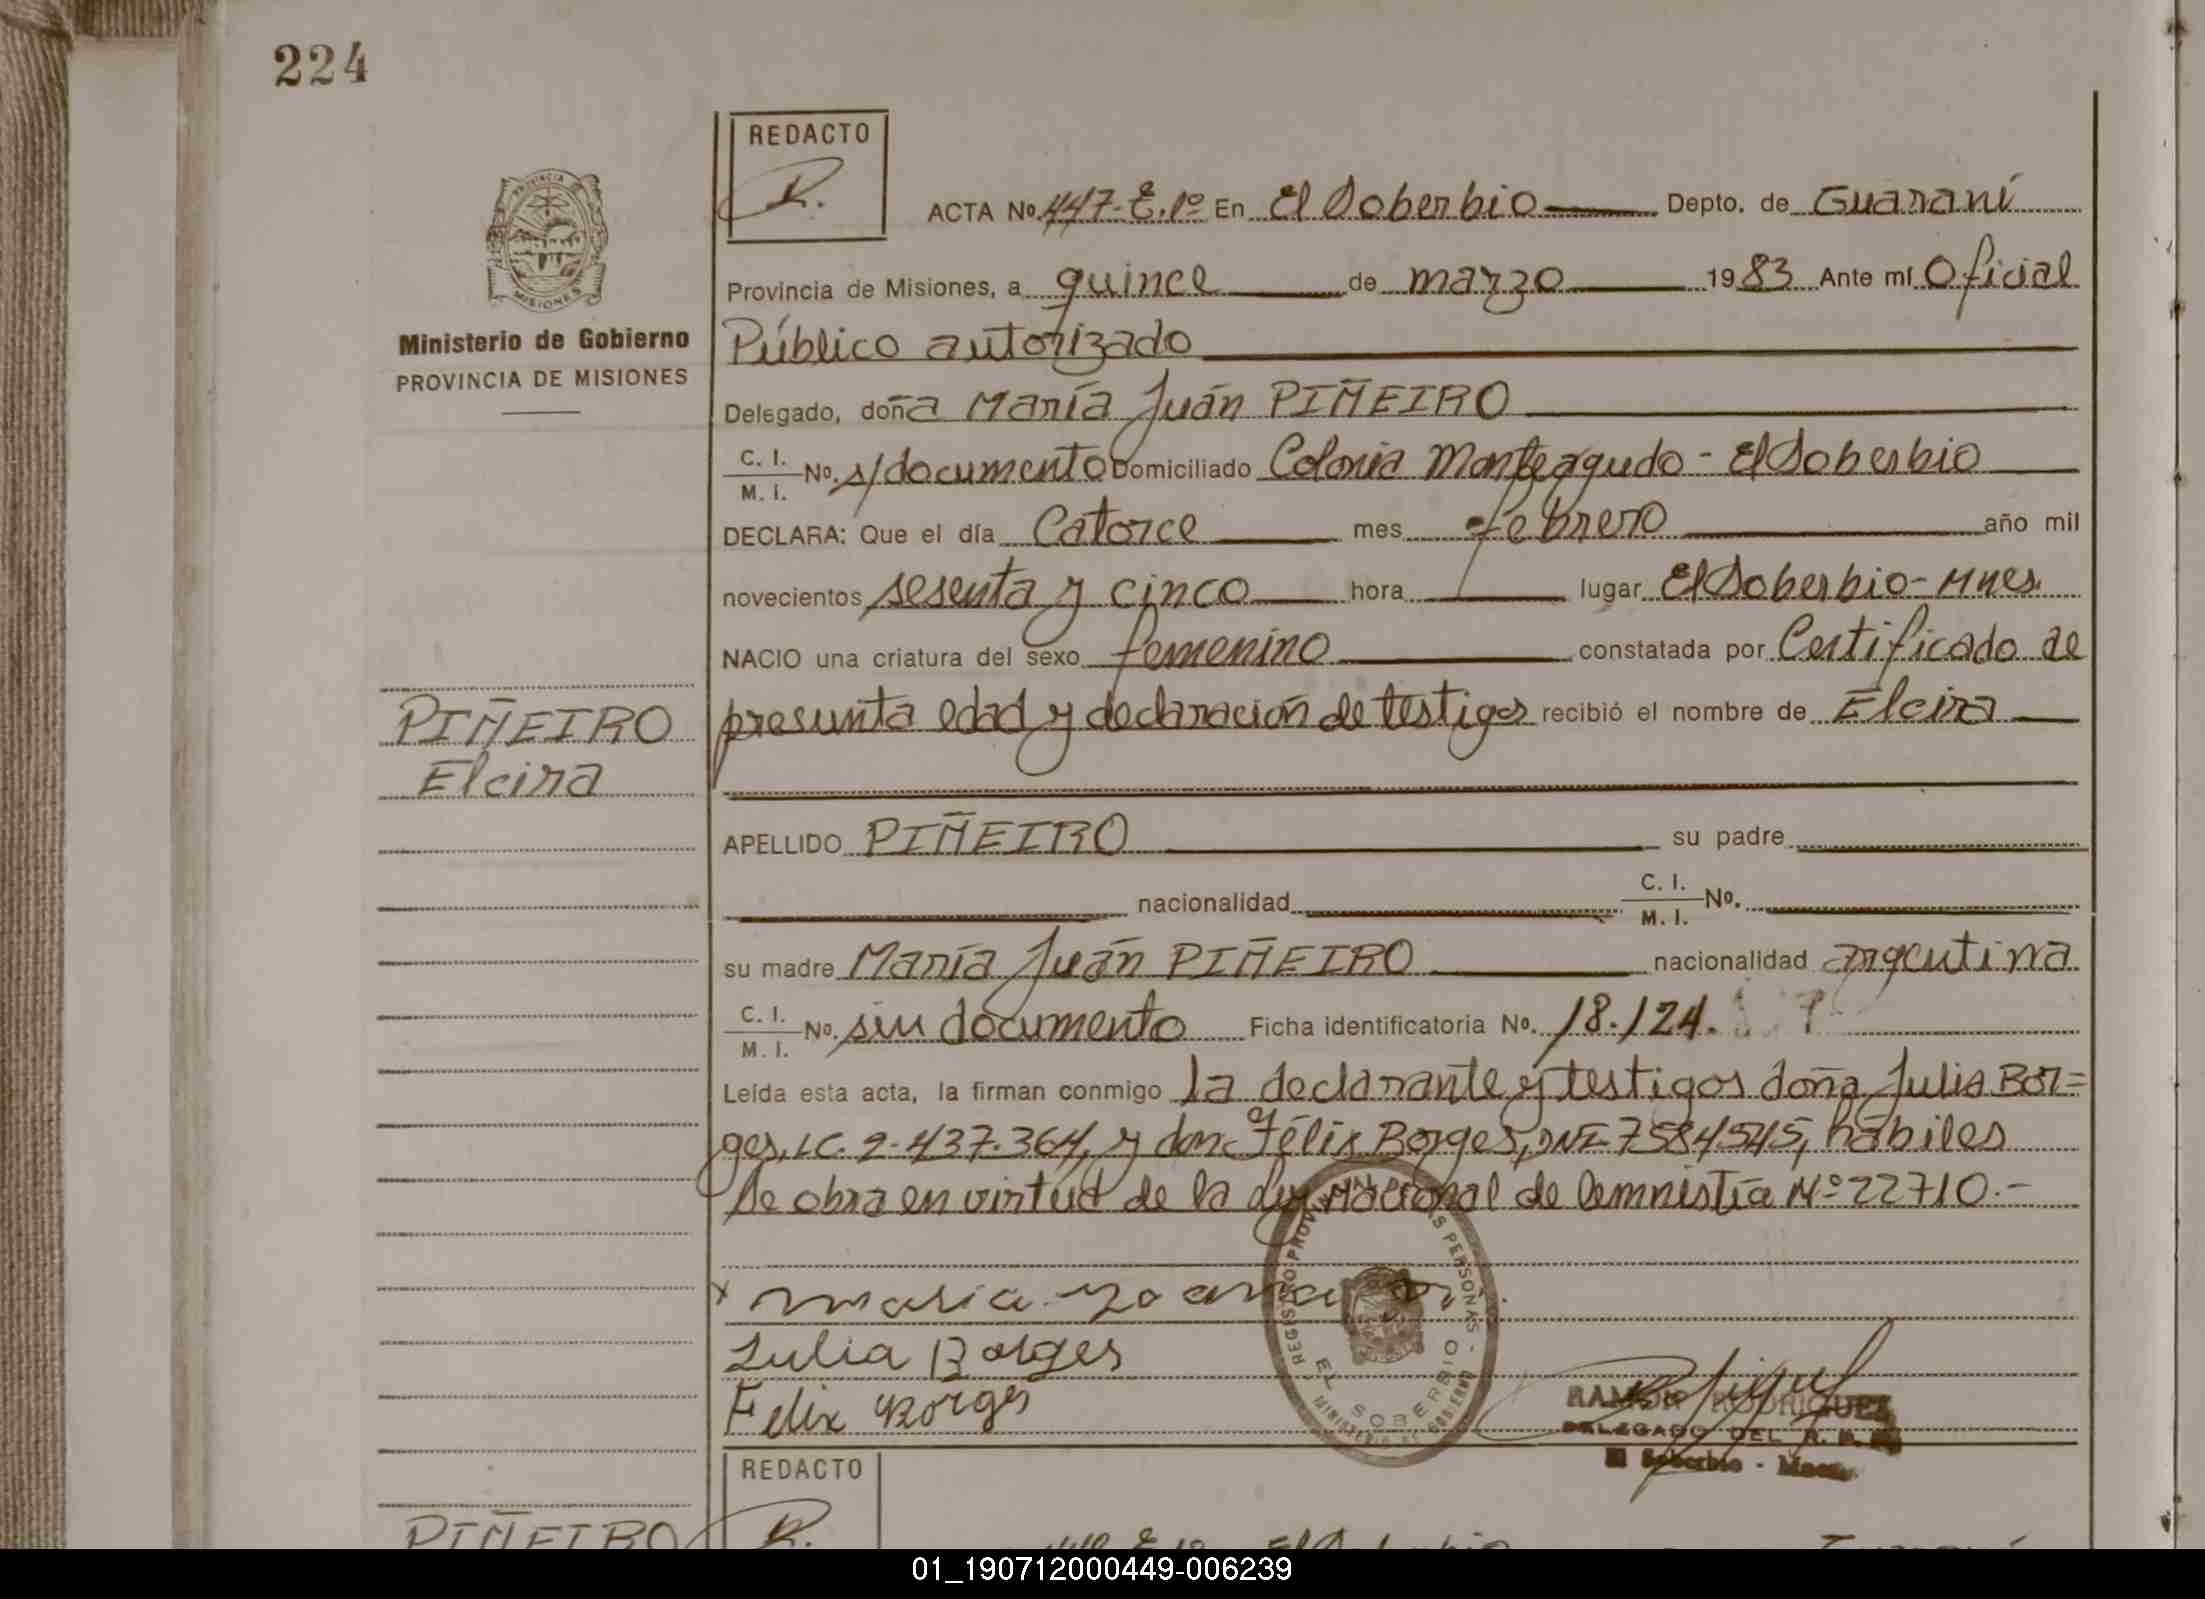 224
REDACTO
R.
ACTA No. 447-E.1º En El Soberbio Depto. de Guaraní
PROVINCIA DE
MISIONES
Provincia de Misiones, a quince de marzo 1983 Ante mí Oficial
Ministerio de Gobierno
PROVINCIA DE MISIONES
Público autorizado
Delegado, doña María Juán PIÑEIRO
C. I.
M. I. No. s/documento Domiciliado Colonia Monteagudo - El Soberbio
DECLARA: Que el día Catorce mes febrero año mil
novecientos sesenta y cinco hora lugar El Soberbio - Mnes.
NACIO una criatura del sexo femenino constatada por Certificado de
presunta edad y declaración de testigos recibió el nombre de Elcira
PIÑEIRO
Elcira
APELLIDO PIÑEIRO su padre
nacionalidad C. I.
M. I. No.
su madre María Juán PIÑEIRO nacionalidad argentina
C. I.
M. I. No. sin documento Ficha identificatoria No. 18.124.
Leída esta acta, la firman conmigo la declarante y testigos doña Julia Bor=
ges, LC. 2.437.364, y don Félix Borges, DNI 7584545, hábiles
Se obra en virtud de la Ley Nacional de Nº 22710.-
x maria
Julia Borges
Felix Borges
REGISTRO PROVINCIAL PERSONAS -
EL SOBERBIO
MINISTERIO DE GOBIERNO
RAMON RODRIGUEZ
DELEGADO DEL R.
El Soberbio - Mnes.
REDACTO
R.
PIÑEIRO
El Soberbio
01_190712000449-006239